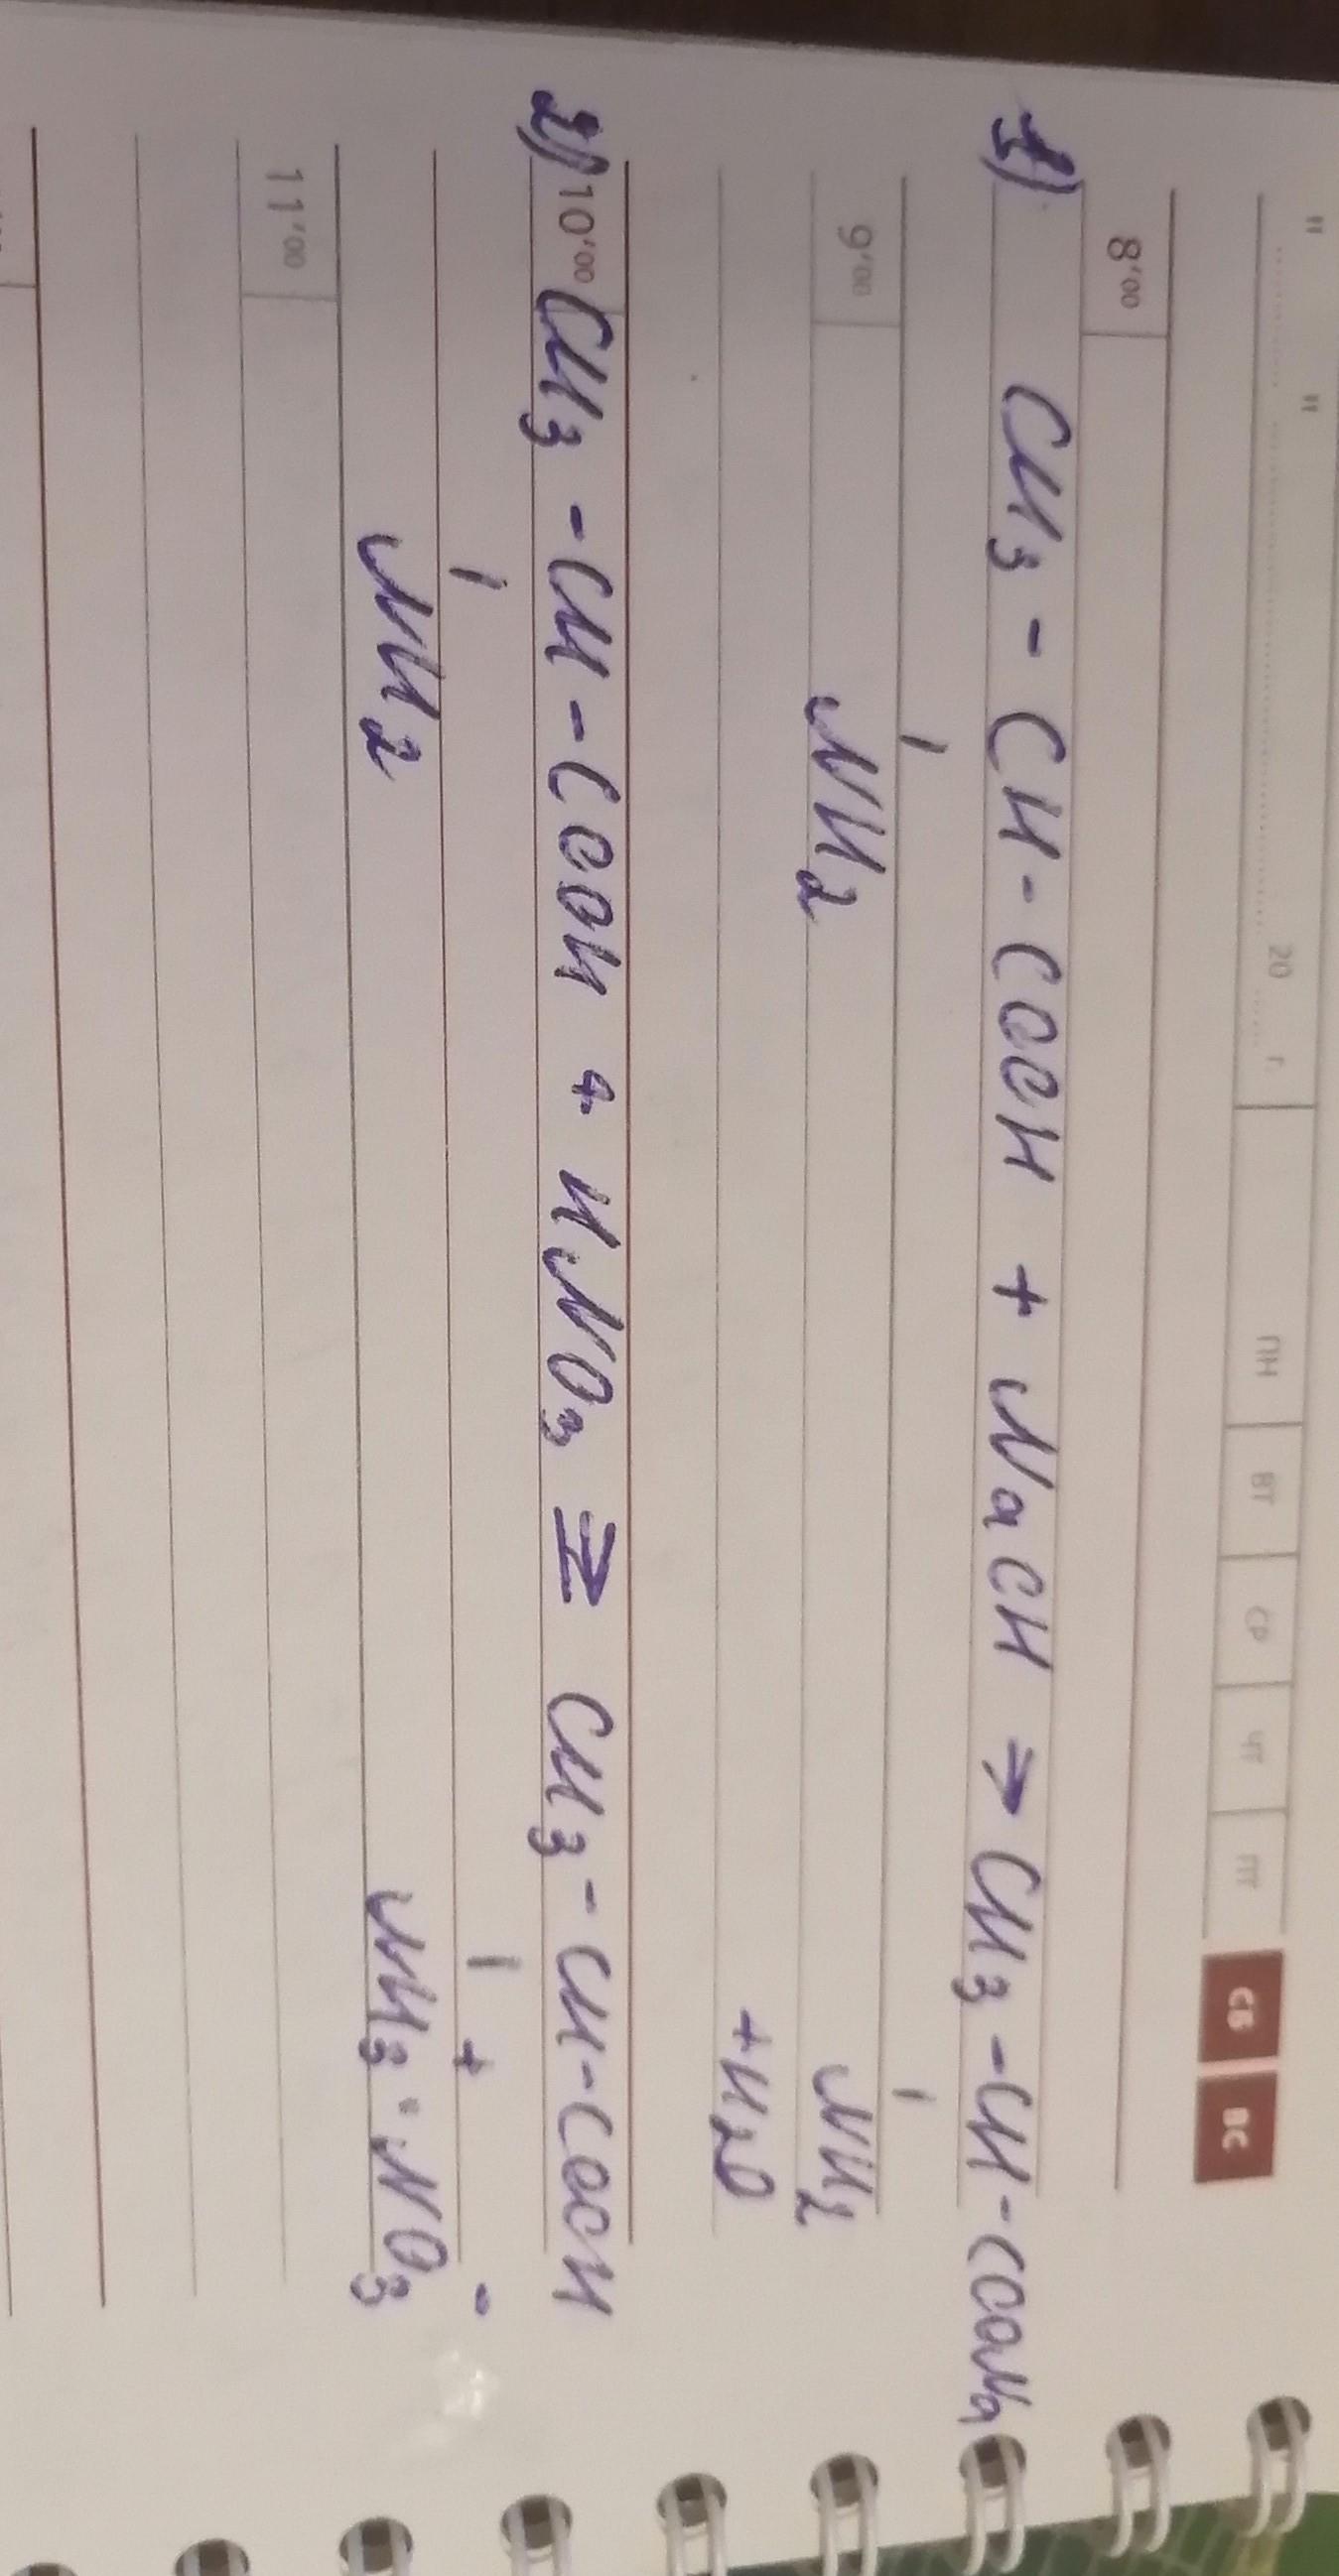 " " 20 г. ПН ВТ СР ЧТ ПТ СБ ВС
8'00
1) CH3 - CH - COOH + NaOH → CH3 - CH - COONa
9'00 NH2 NH2
+H2O
2) 10'00 CH3 - CH - COOH + HNO3 → CH3 - CH - COOH
+ -
NH2 NH3 · NO3
11'00